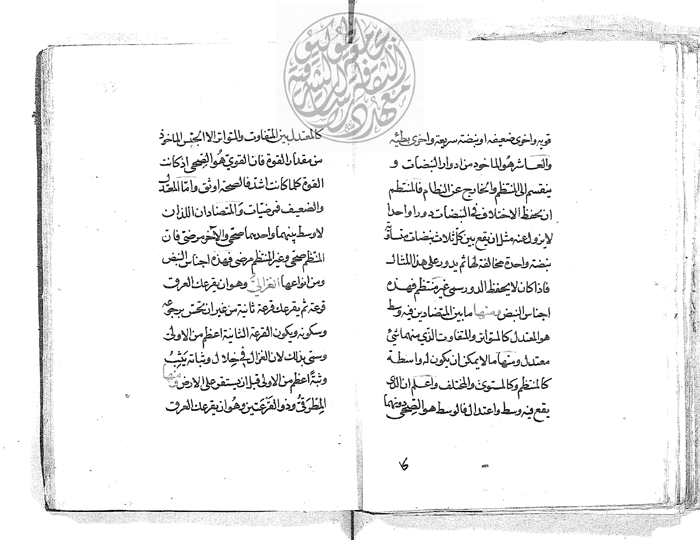 قوية واخرى ضعيفه او نبضة سريعة واخرى بطئيه
والعاشر هو الماخود من ادوار النبضات و
ينقسم الى المنتظم والخارج عن النظام فالمنتظم
ان يحفظ الاختلاف فى النبضات دورا واحدا
لا يزول عنه مثل ان يقع بين كل ثلاث نبضات متساوية
نبضة واحدة مخالفة لها ثم يدور على هذا المثال
فاذا كان لا يحفظ الدور سمى غير منتظم فهذه
اجناس النبض ومنها ما بين المتضادين فيه وسط
هو المعتدل كالمتواتر والمتفاوت الذي بينهما شئ
معتدل ومنها ما لا يمكن ان يكون له واسطة
كالمنتظم وكالمستوى والمختلف واعلم ان الذى
يقع فيه وسط واعتدال فالوسط هو الصحى دونهما
كالمعتدل بين المتفاوت والمتواتر الا الجنس الماخوذ
من مقدار القوة فان القوي هو الصحى اذ كانت
القوة كلما كانت اشد فالصحة اوثق واما المعتدل
والضعيف فمرضيات والمتضادان اللذان
لا وسط بينهما واحدهما صحى والآخر مرضى فان
المنتظم صحى وغير المنتظم مرضى فهذه اجناس النبض
ومن انواعها الغزالى وهو ان يقرعك العرق
قرعة ثم يقرعك قرعة ثانية من غير ان تحس برجوعه
وسكونه ويكون القرعة الثانية اعظم من الاولى
وسمى بذلك لان الغزال فى خلال وثباته يثب
وثبة اعظم من الاولى قبل ان يستقر على الارض ومنها
المطرقى وذو القرعتين وهو ان يقرعك العرق